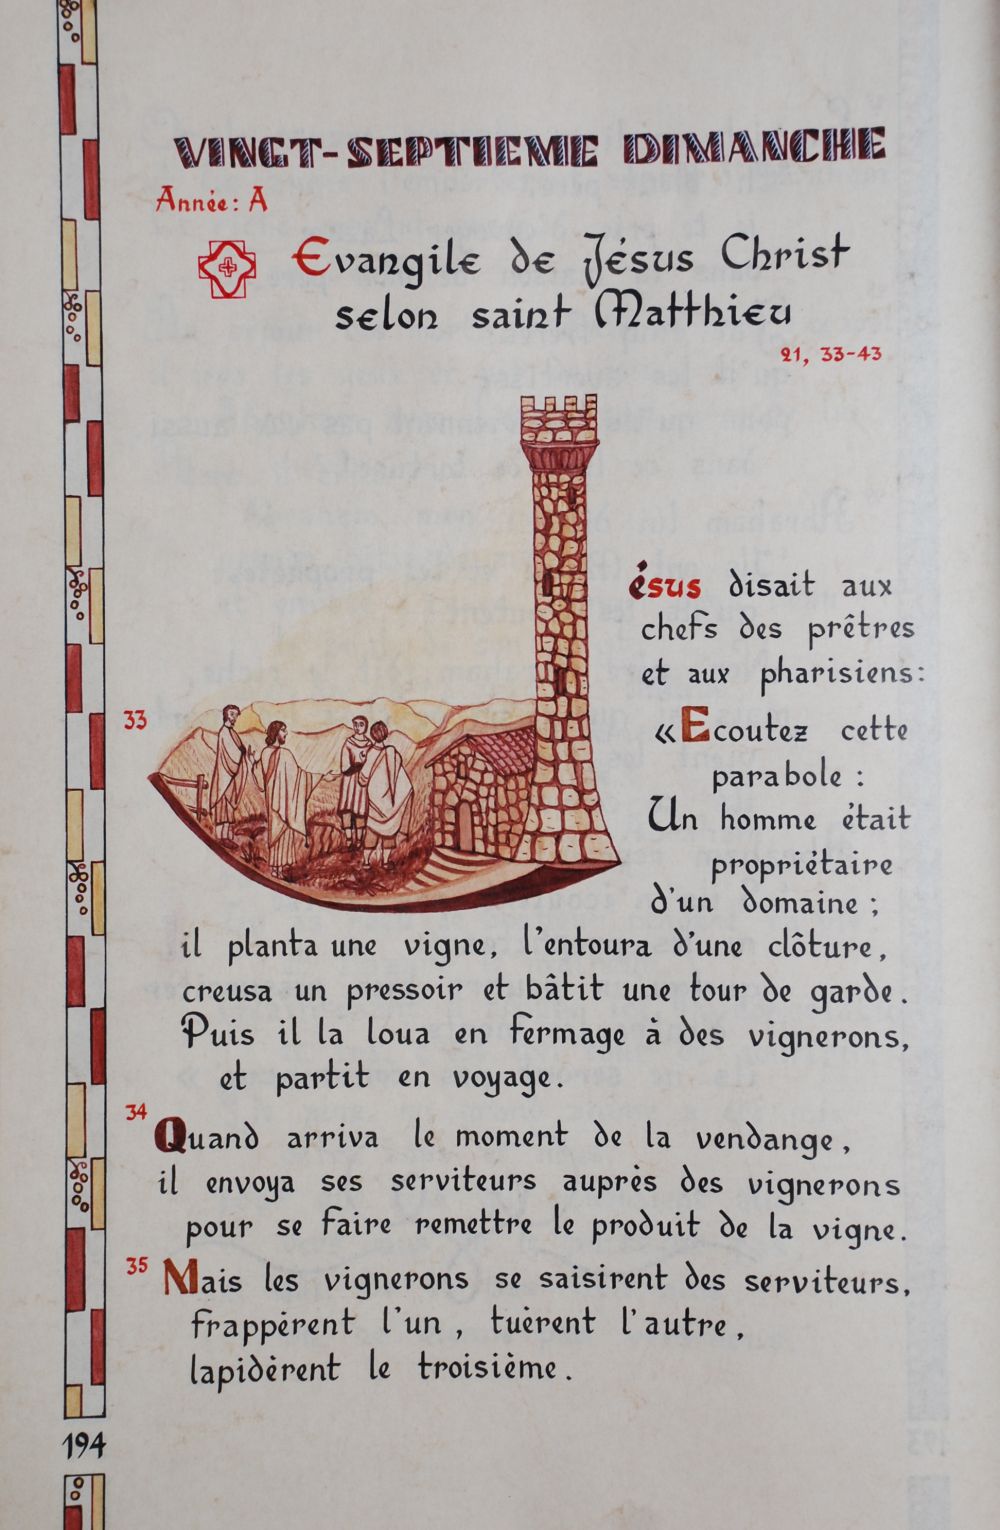 VINGT-SEPTIEME DIMANCHE
Année: A
Evangile de Jésus Christ
selon saint Matthieu
21, 33-43
ésus disait aux
chefs des prêtres
et aux pharisiens:
33
«Ecoutez cette
parabole :
Un homme était
propriétaire
d'un domaine ;
il planta une vigne, l'entoura d'une clôture,
creusa un pressoir et bâtit une tour de garde.
Puis il la loua en fermage à des vignerons,
et partit en voyage.
34 Quand arriva le moment de la vendange,
il envoya ses serviteurs auprès des vignerons
pour se faire remettre le produit de la vigne.
35 Mais les vignerons se saisirent des serviteurs,
frappèrent l'un, tuèrent l'autre,
lapidèrent le troisième.
194